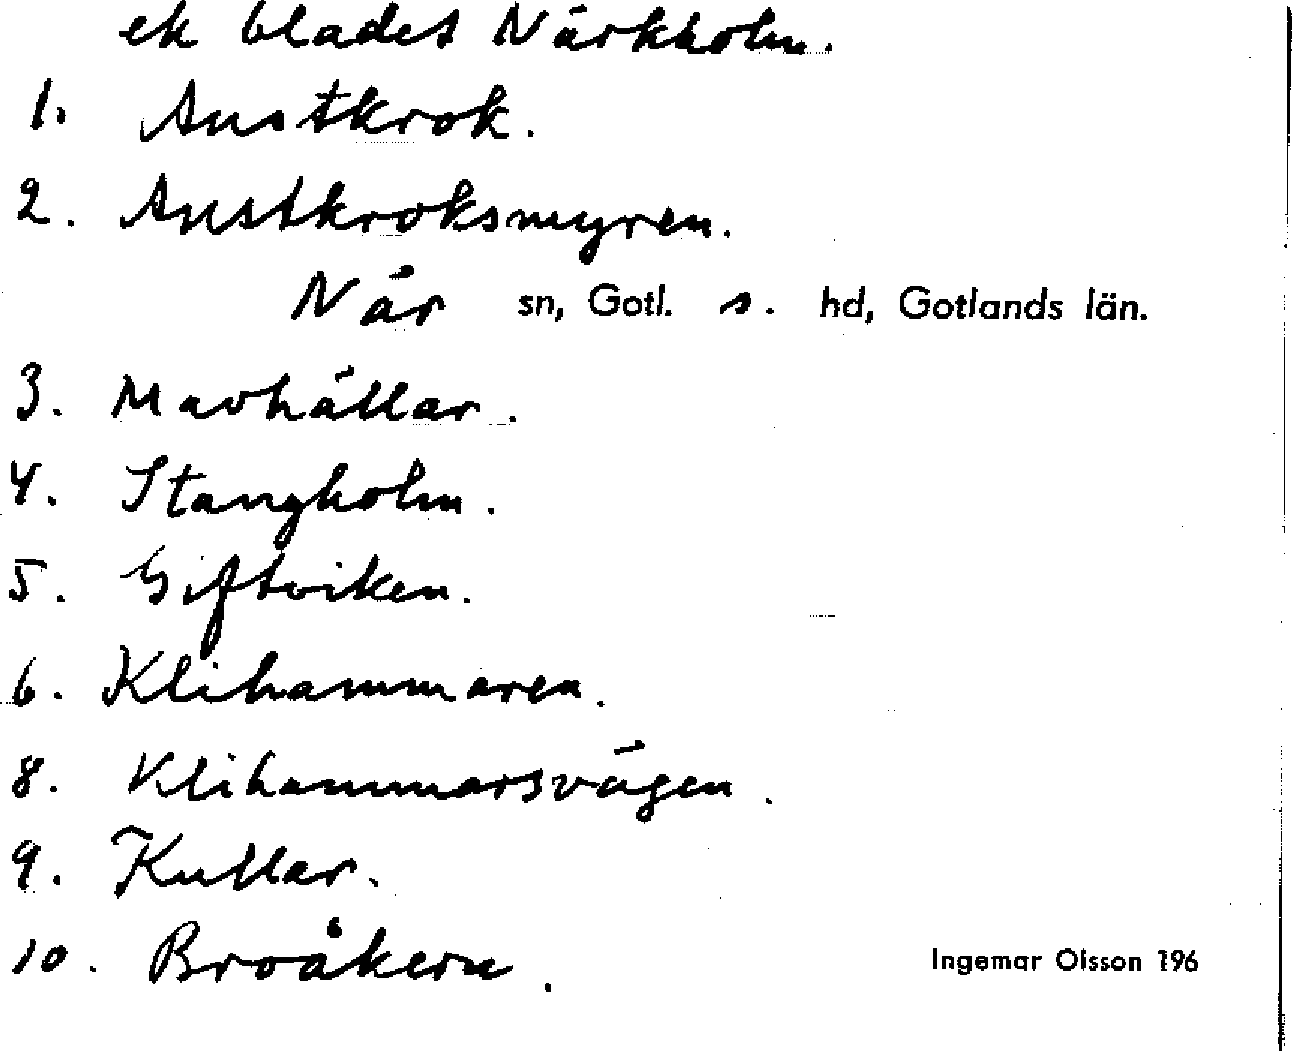 ek bladet Närkholm.
1. Austkrok.
2. Austkroksmyren.
När sn, Gotl. s. hd, Gotlands län.
3. Mavhällar.
4. Stangholm.
5. Giftviken.
6. Klihammaren.
8. Klihammarsvägen.
9. Kullar.
10. Broåkern.
Ingemar Olsson 196